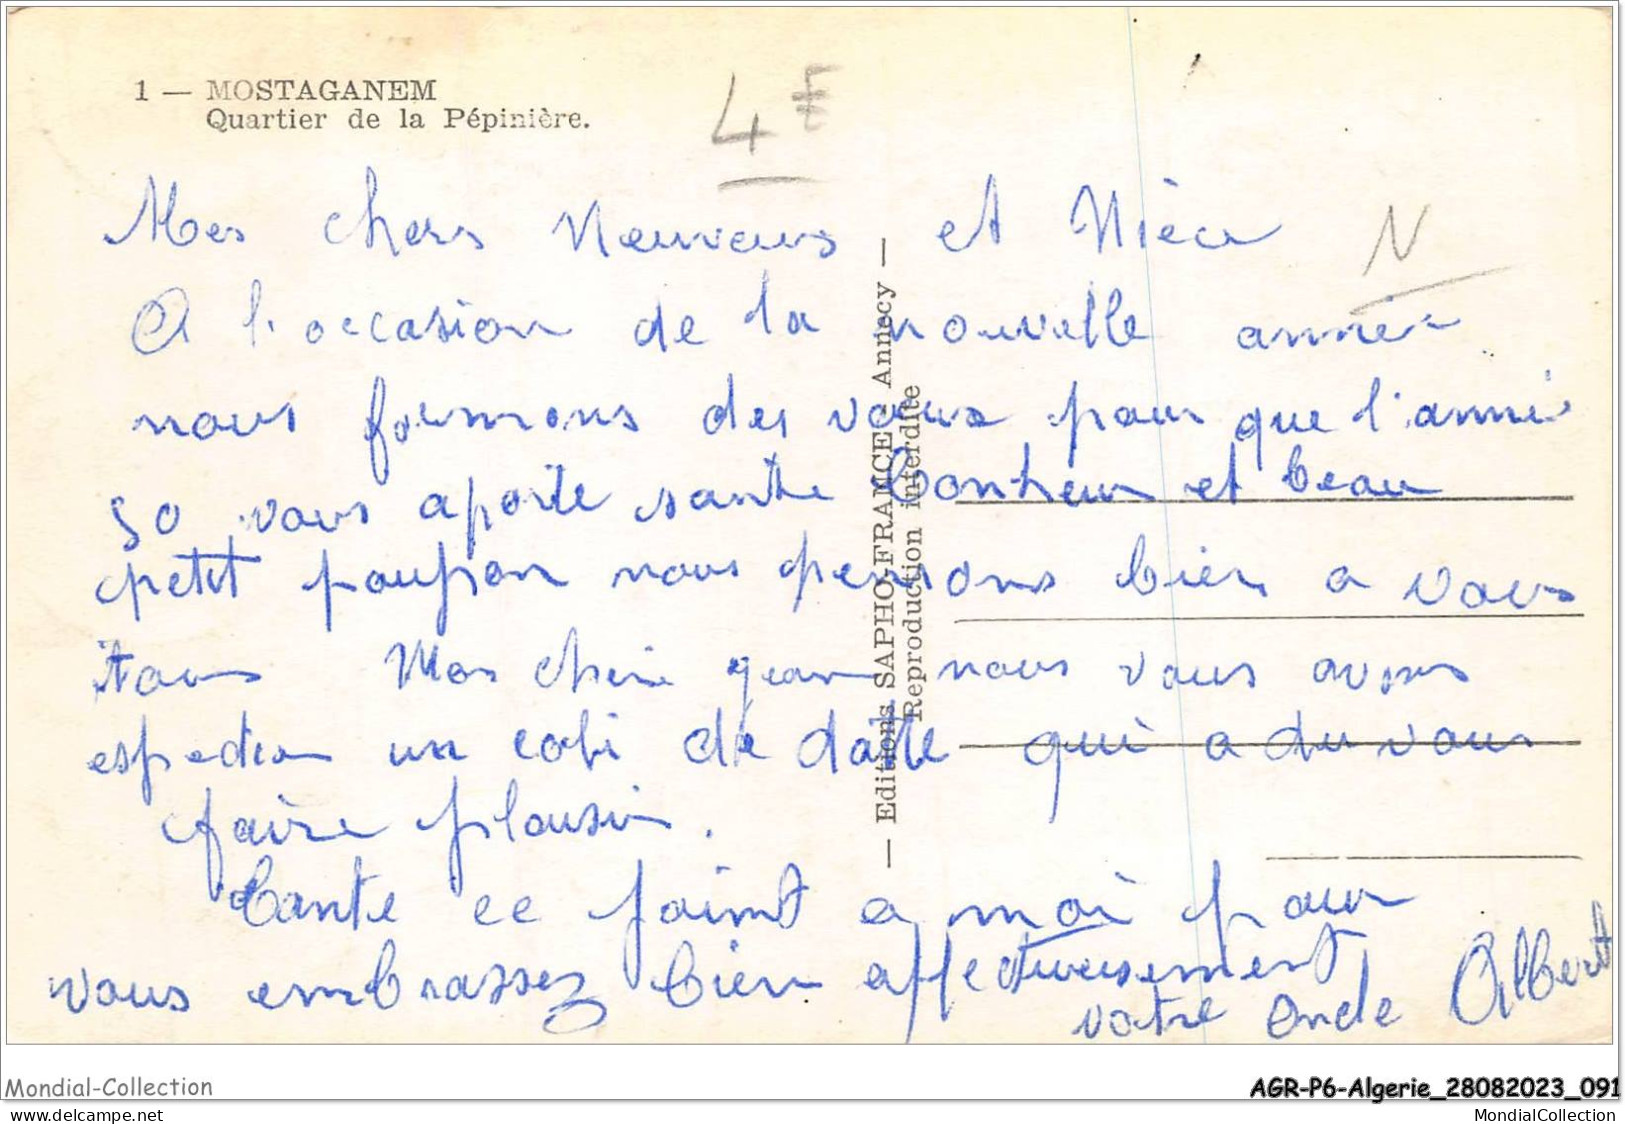 1 — MOSTAGANEM
Quartier de la Pépinière.
4€
N
Mes chers Neuveus et Nièce
A l'occasion de la nouvelle année
nous formons des vœux pour que l'anné
50 vous aporte santé bonheur et beau
petit poupon nous pensons bien a vous
tous Mon chere jean nous vous avons
espedion un coli de datte qui a du vous
faire plausir.
Tante ce joint a moi pour
vous embrassez bien affectueusement
votre oncle Albert
— Editions SAPHO-FRANCE - Annecy —
Reproduction interdite
Mondial-Collection
AGR-P6-Algerie_28082023_091
www.delcampe.net
MondialCollection